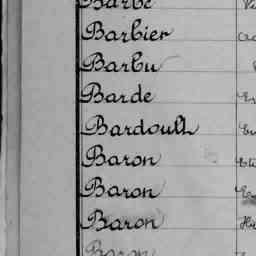 Barbe
Barbier
Barbu
Barde
Bardoulh
Baron
Baron
Baron
Baron